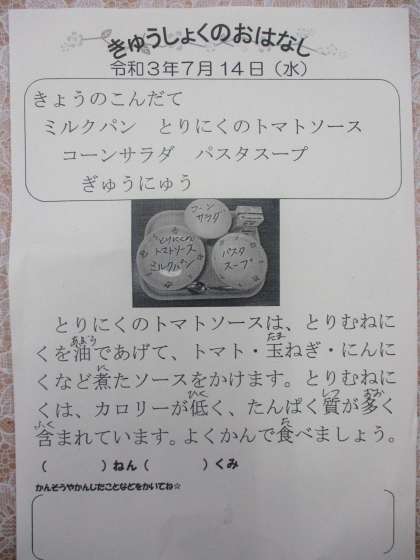 きゅうしょくのおはなし
令和3年7月14日（水）
きょうのこんだて
ミルクパン　とりにくのトマトソース
コーンサラダ　パスタスープ
ぎゅうにゅう
コーン
サラダ
とりにくの
トマトソース
ミルクパン
パスタ
スープ
とりにくのトマトソースは、とりむねに
くを油であげて、トマト・玉ねぎ・にんに
くなど煮たソースをかけます。とりむねに
くは、カロリーが低く、たんぱく質が多く
含まれています。よくかんで食べましょう。
（　　　）ねん（　　　）くみ
かんそうやかんじたことなどをかいてね☆